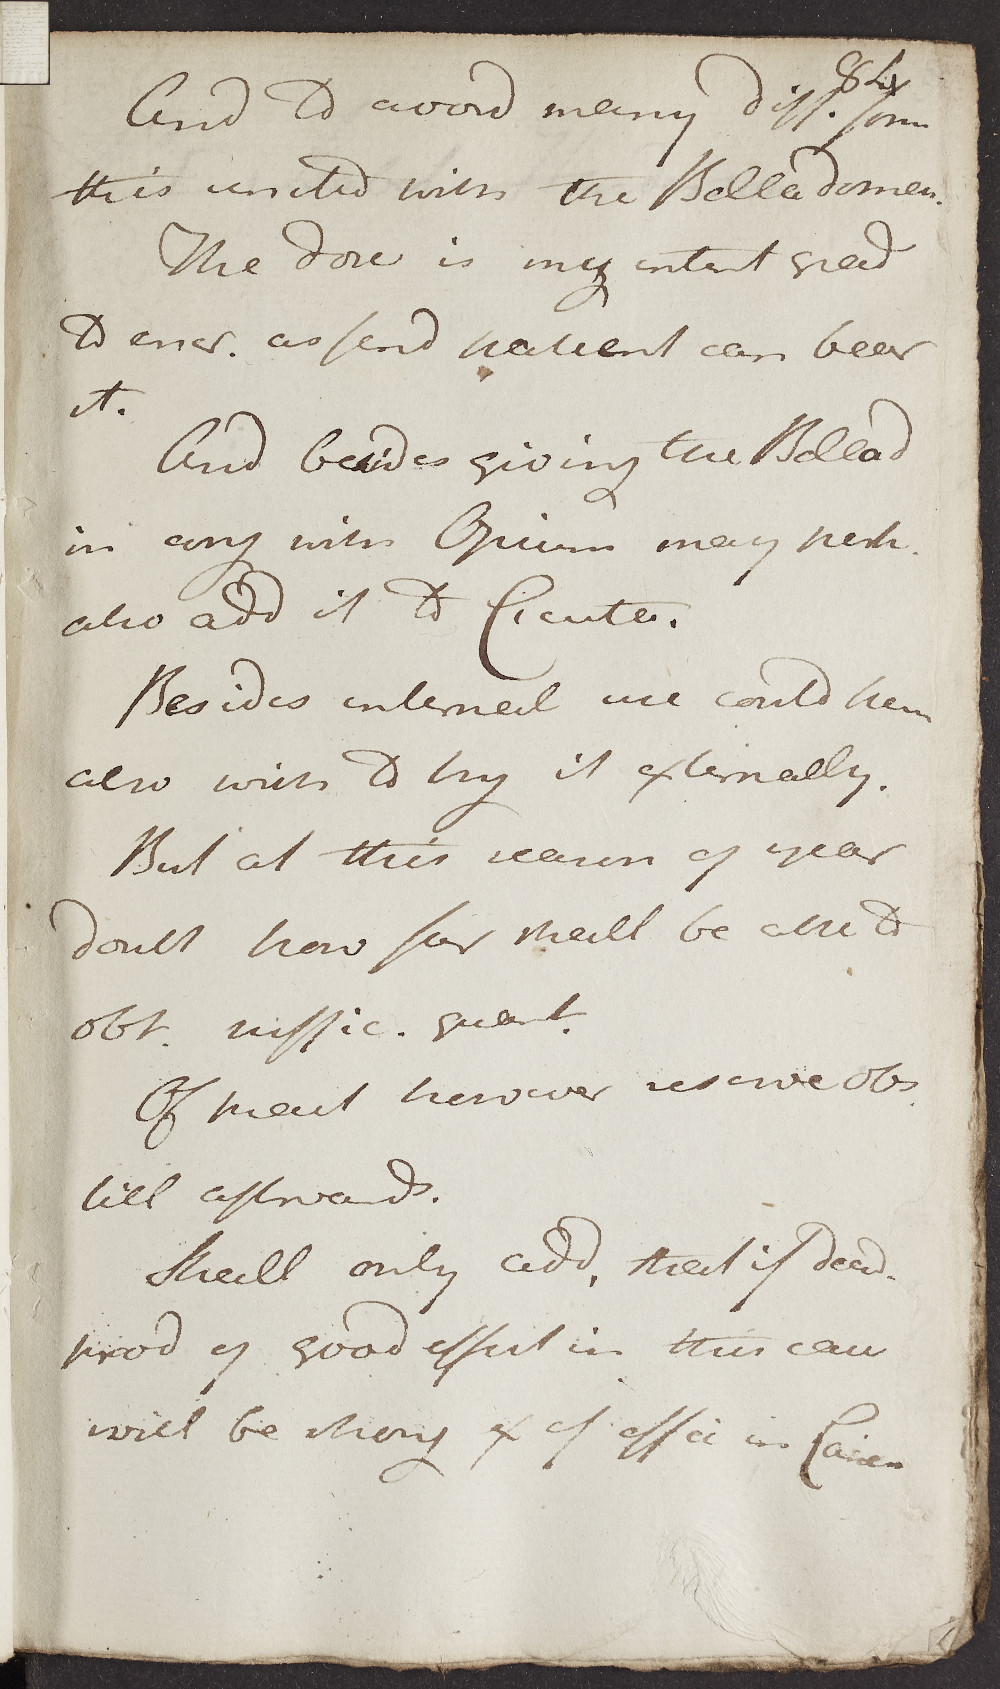 And to avoid many diff. from
this united with the Belladonna.
The dose is my intent grad
to encr. as find patient can bear
it.
And besides giving the Bellad
in conj with Opium may perh.
also add it to Cicuta.
Besides internal use could hem
also wish to try it externally.
But at this season of year
doubt how far shall be able to
obt. suffic. quant.
Of meut however reserve obs.
till afterwards.
Shall only add, that if dead.
prod of good effect in this case
will be strong ex of effic in Cases